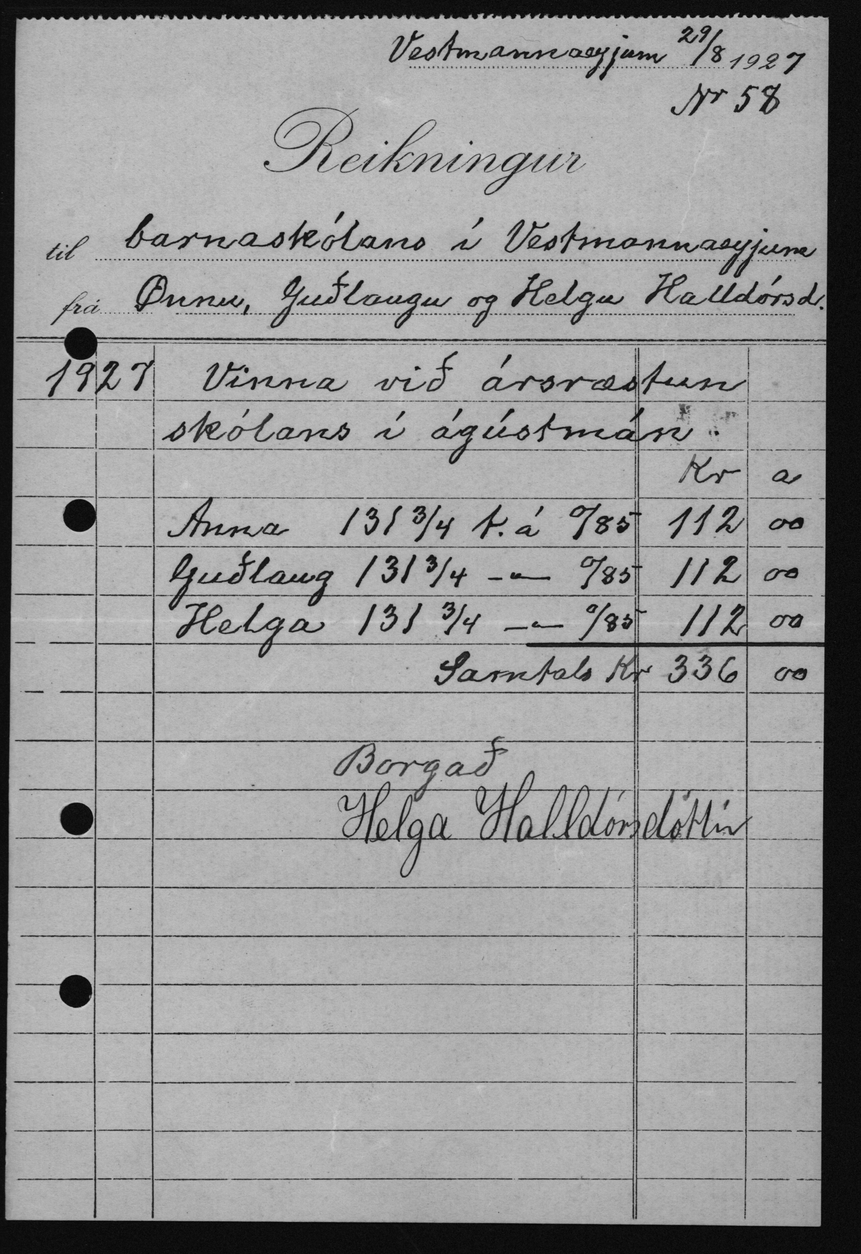 Vestmannaeyjum 29/8 1927
Nr 58
Reikningur
til barnaskólans í Vestmannaeyjum
frá Önnu, Guðlaugu og Helgu Halldórsd.
1927 Vinna við ársræstun
skólans í ágústmán
Kr a
Anna 131 3/4 t. á 0/85 112 00
Guðlaug 131 3/4 -"- 0/85 112 00
Helga 131 3/4 -"- 0/85 112 00
Samtals Kr 336 00
Borgað
Helga Halldórsdóttir